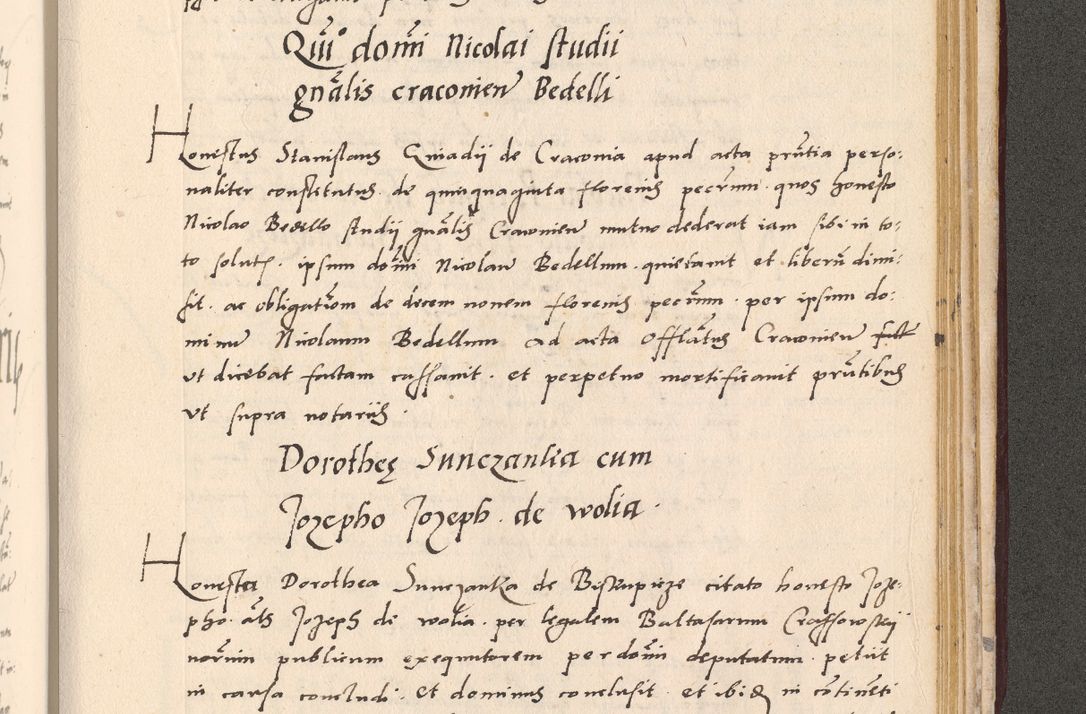 Quit domini Nicolai studii
gnalis cracovien Bedelli
Honestus Stanislaus Gniadii de Cracovia apud acta pntia perso:
naliter constitutus de quinquaginta florenis pecunii quos honesto
Nicolao Bedello studii gnalis Cracovien mutuo dederat iam sibi in to:
to solutis. ipsum domi Nicolau Bedellum quietavit et liberu dimi:
sit. ac obligatiom de decem novem florenis pecunii per ipsum do:
minu Nicolaum Bedellum ad acta Offitiatus Cracovien fact
ut dicebat factam cassavit. et perpetuo mortificavit pntibus
ut supra notariis.
Dorothee Sunczanka cum
Jozepho Jozeph de wolia.
Honesta Dorothea Sunczanka de citato honesto Joze:
pho als Jozeph de wolia per legalem Baltasarum Crassowskij
norium publicum exequutorem per domi deputatum petiit
in causa concludi. Et dominus conclusit. et ibid in cotineti